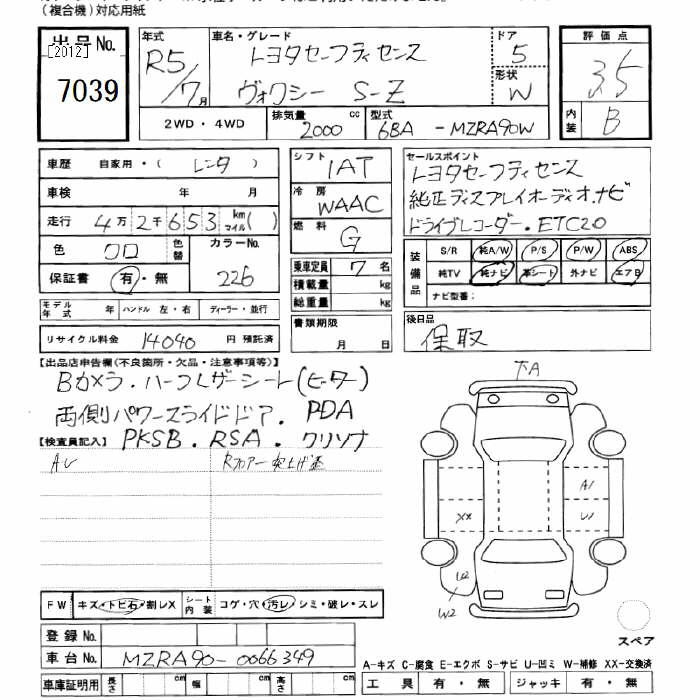 (複合機)対応用紙
出品No.
[2012]
7039
年式
R5/7月
車名・グレード
トヨタセーフティセンス
ヴォクシー S-Z
ドア
5
形状
W
評価点
3.5
内装
B
2WD・4WD
排気量
2000 cc
型式
6BA -MZRA90W
車歴 自家用・( レンタ )
車検 年 月
走行 4万2千653 km マイル( )
色 クロ 色替
カラーNo.
226
保証書 有・無
シフト IAT
冷房 WAAC
燃料 G
乗車定員 7 名
積載量 kg
総重量 kg
書類期限
月 日
セールスポイント
トヨタセーフティセンス
純正ディスプレイオーディオ.ナビ
ドライブレコーダー.ETC2.0
装備品
S/R 純A/W P/S P/W ABS
純TV 純ナビ 革シート 外ナビ エアB
ナビ型番:
モデル年式 年 ハンドル 左・右 ディーラー・並行
リサイクル料金 14040 円 預託済
後日品
保取
【出品店申告欄(不良箇所・欠品・注意事項等)】
Bカメラ.ハーフレザーシート(ヒーター)
両側パワースライドドア. PDA
【検査員記入】 PKSB. RSA. クリソナ
AU
Rフロアー突上げ歪
下A
A1
XX
U1
U2
W2
スペア
FW キズ・トビ石・割レX
シート内装 コゲ・穴・汚レ・シミ・破レ・スレ
登録No.
車台No. MZRA90-0066349
車庫証明用 長さ cm 幅 cm 高さ cm
A-キズ C-腐食 E-エクボ S-サビ U-凹ミ W-補修 XX-交換済
工具 有・無 ジャッキ 有・無